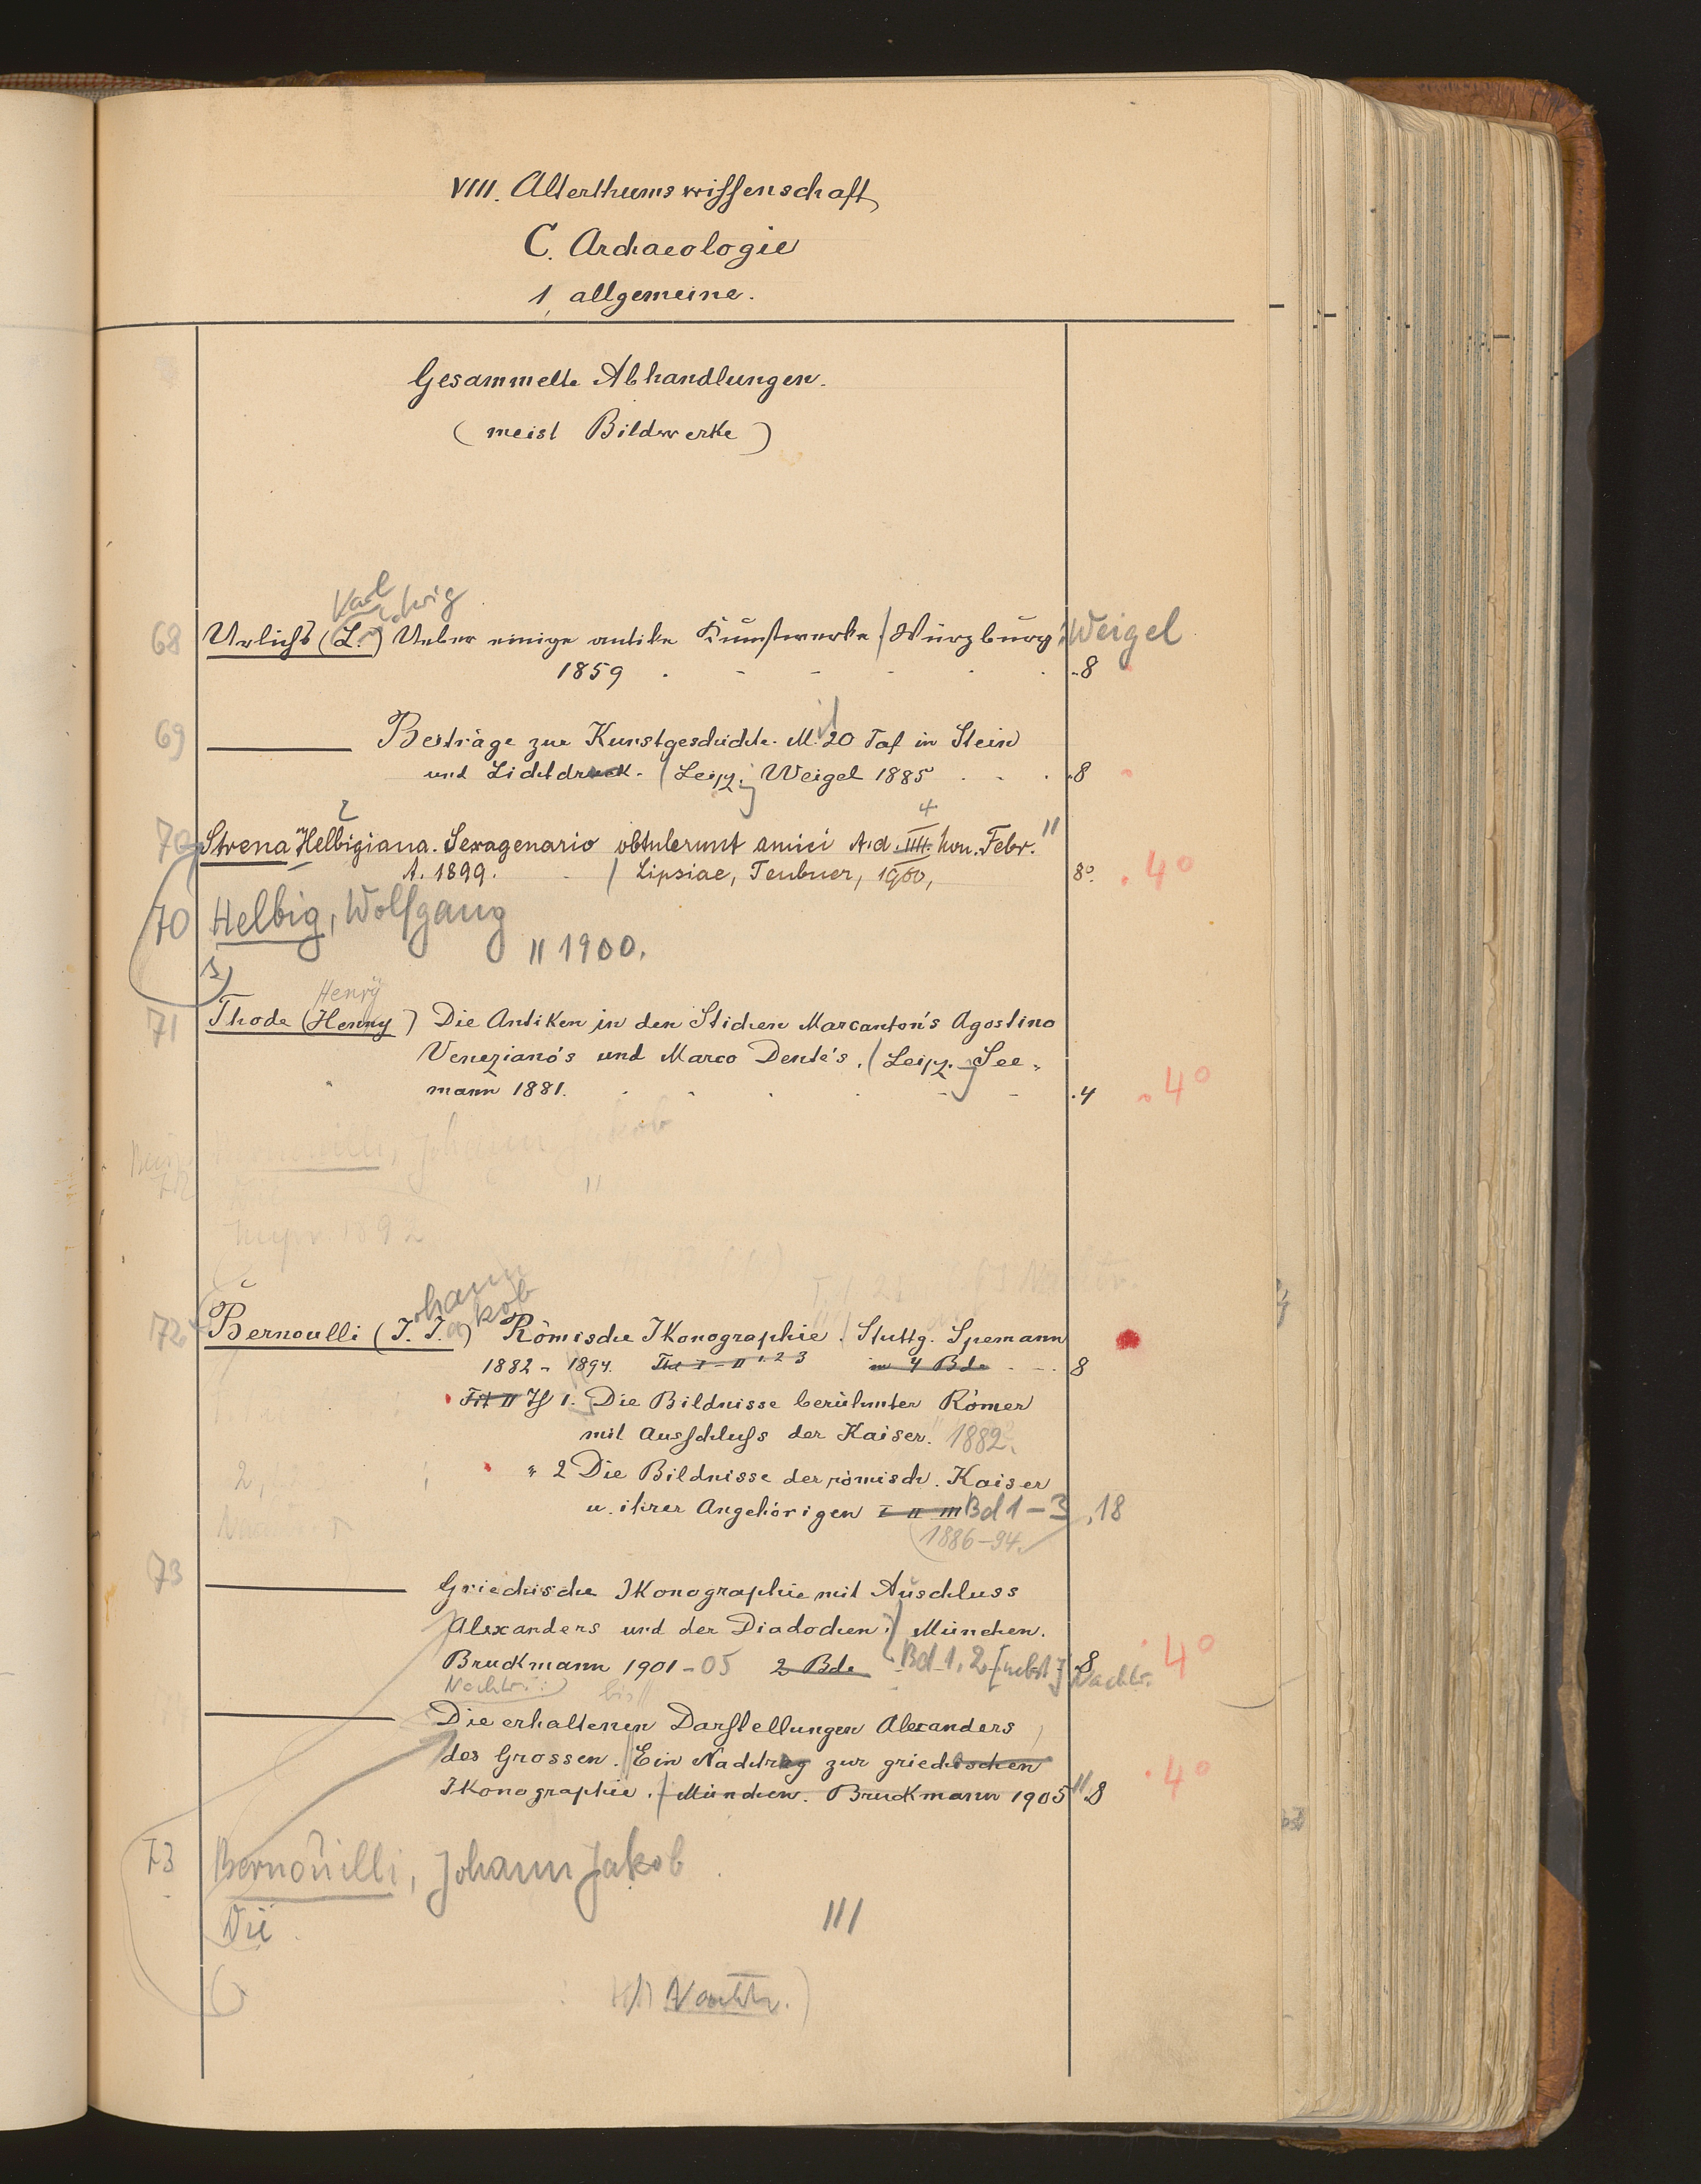 VIII. Alterthumswissenschaft
C. Archaeologie
1, allgemeine.
Gesammelte Abhandlungen.
(meist Bildwerke)
Karl
Ludwig
68 Urlichs (L.) Ueber einige antike Kunstwerke / Würzburg: Weigel
1859 . - - - . . .8
69 ——— Beiträge zur Kunstgeschichte. M. 20 Taf in Stein
und Lichtdruck. (Leipz. Weigel 1885 . . . .8
4
70 Strena Helbigiana. Sexagenario obtulerunt amici A.d. IIII. Non. Febr. "
A. 1899. / Lipsiae, Teubner, 1900, 8o. . 4o
70 Helbig, Wolfgang
" 1900.
Henry
71 Thode (Henry) Die Antiken in den Stichen Marcanton's Agostino
Veneziano's und Marco Dente's. (Leipz. See-
mann 1881. . . . . - - .4 . 4o
Johann Jakob
1892
ohann
akob
72 Bernoulli (J. J.) Römische Ikonographie. / Stuttg. Spemann
1882 - 1894. Thl I - II 1. 2 3 in 4 Bde - - . 8
II 1. Die Bildnisse berühmter Römer
mit Ausschluss der Kaiser. 1882.
" 2 Die Bildnisse der römisch. Kaiser
u. ihrer Angehörigen I II III Bd 1-3, 18
(1886-94.
73 ——— Griechische Ikonographie mit Auschluss
Alexanders und der Diadochen. / München.
Bruckmann 1901-05 2 Bde Bd 1. 2 [nebst] Nachtr. 8 4o
Nachtr.:
——— Die erhaltenen Darstellungen Alexanders
des Grossen. Ein Nachtrag zur griechischen
Ikonographie. / München. Bruckmann 1905 " .8 . 4o
73 Bernouilli, Johann Jakob
Die
III
Nachtr.)